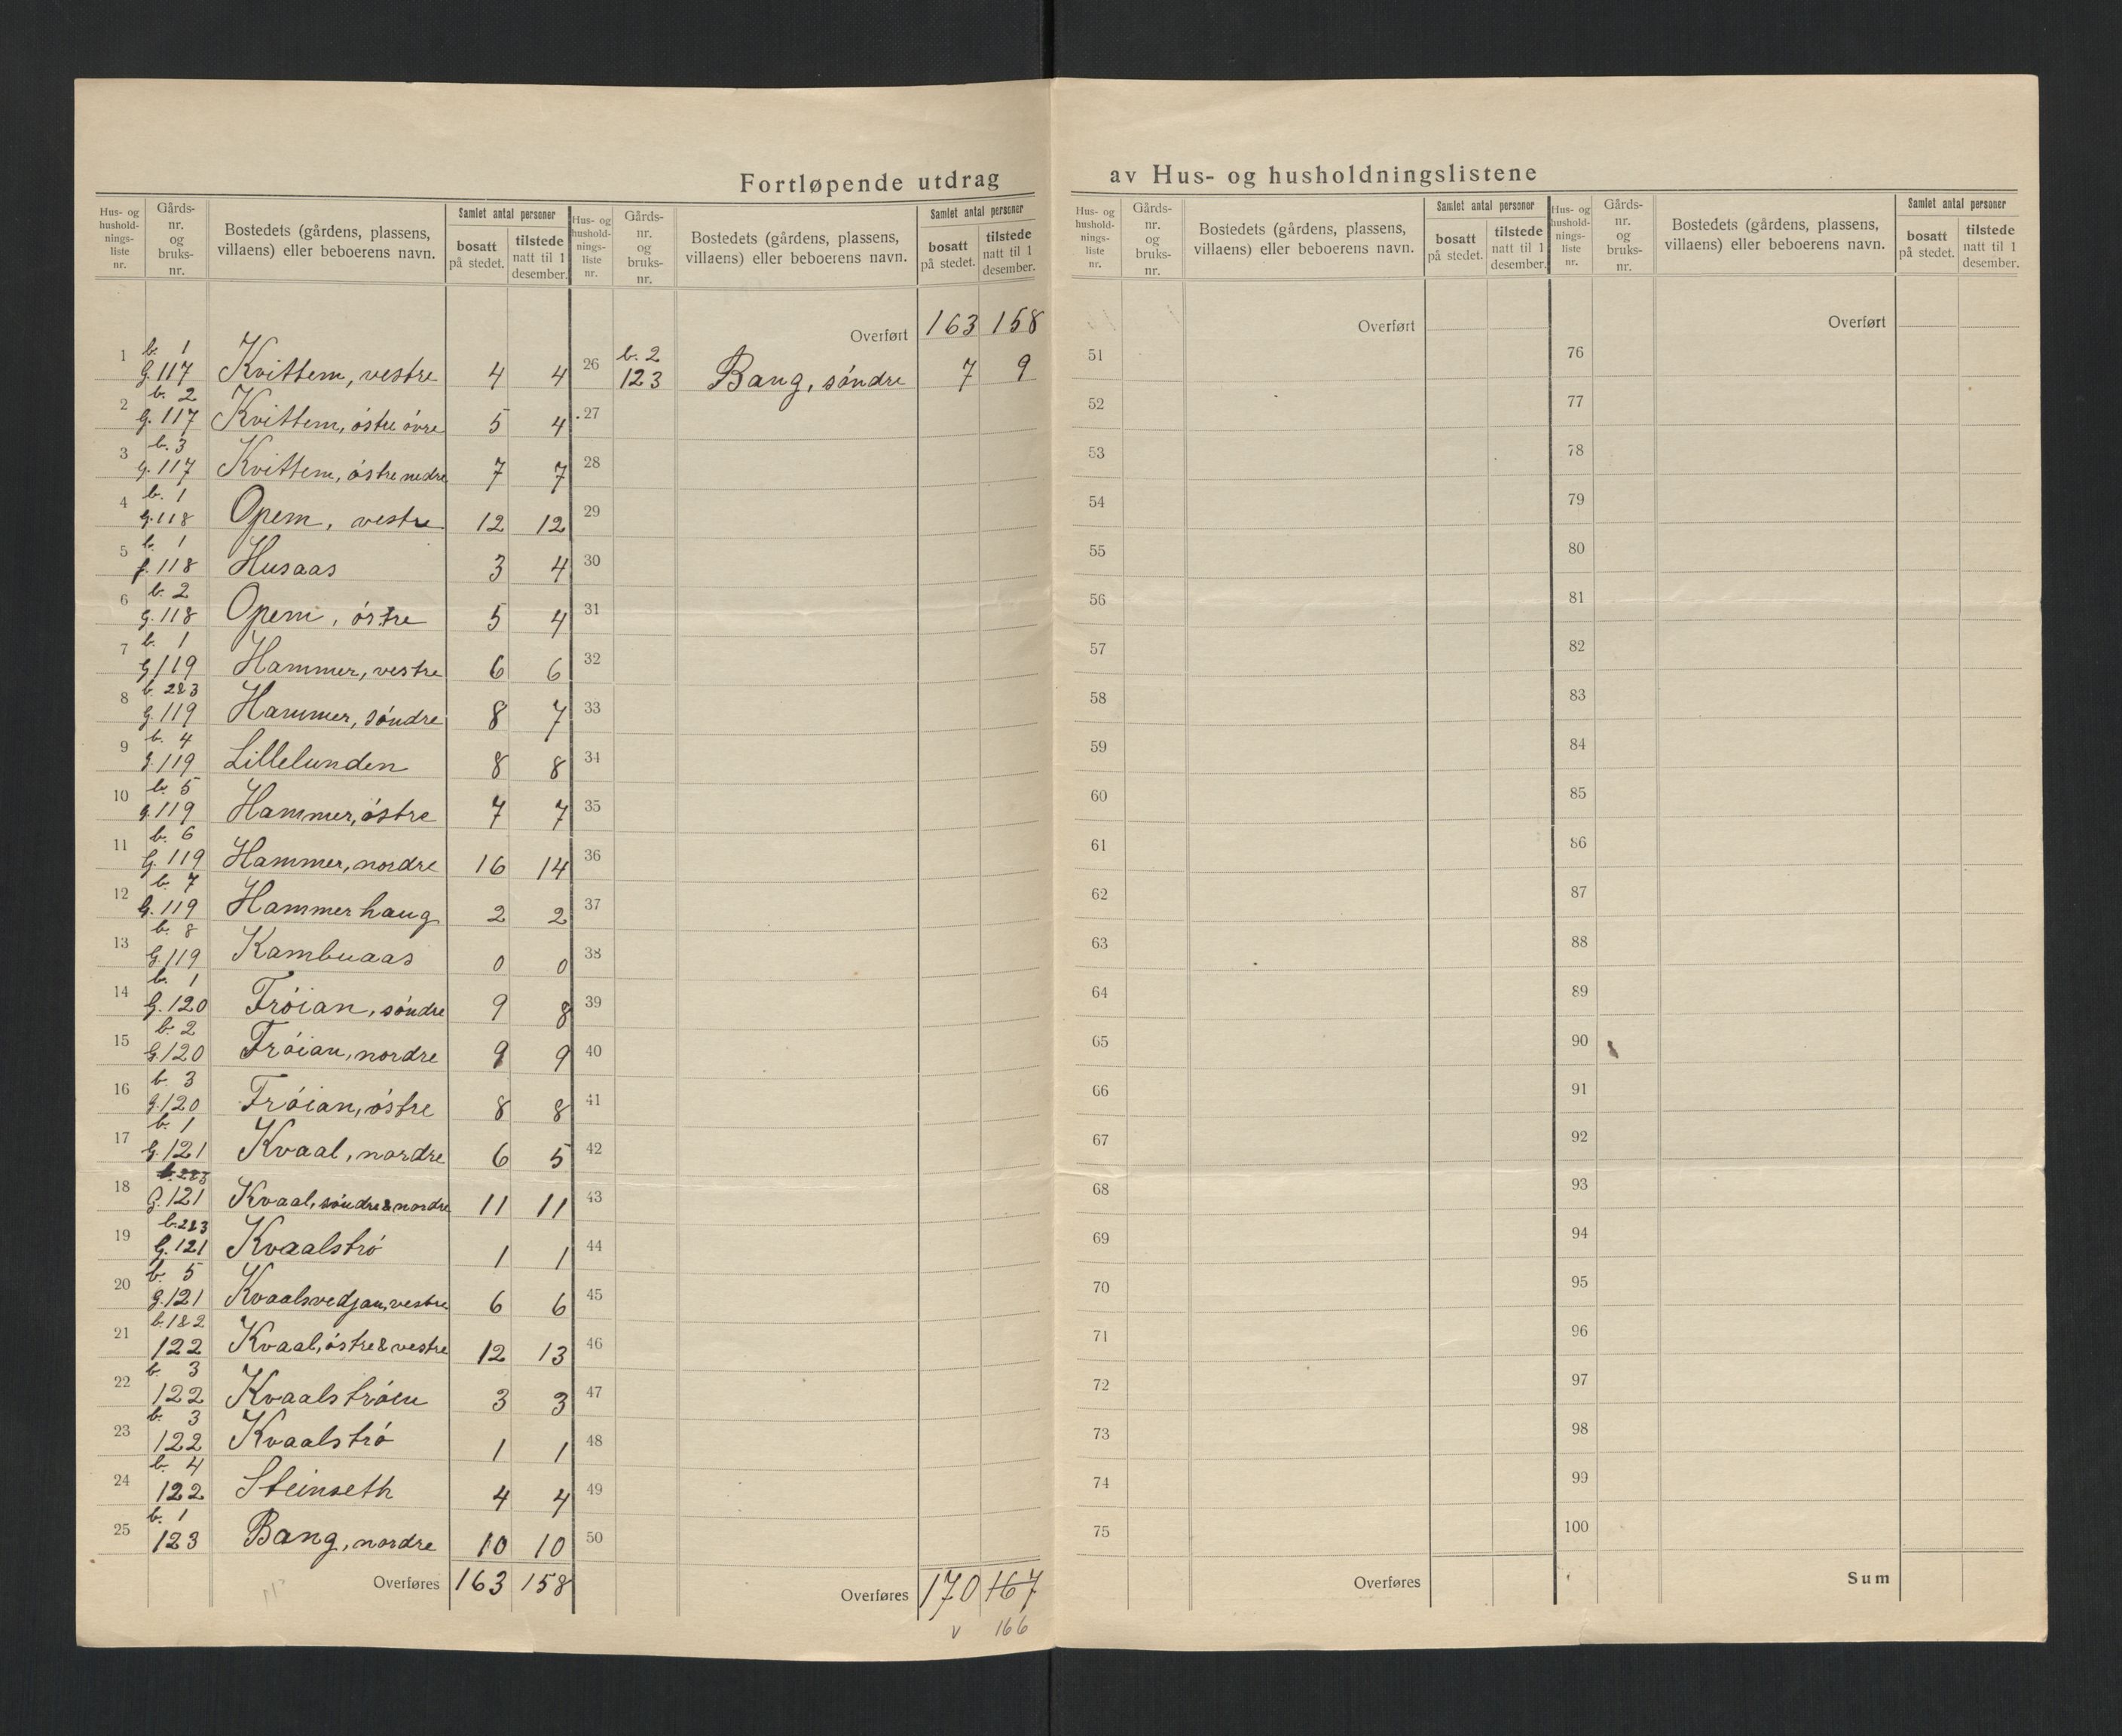 Fortløpende utdrag av Hus- og husholdningslistene
Hus- og hushold- nings- liste nr. | Gårds- nr. og bruks- nr. | Bostedets (gårdens, plassens, villaens) eller beboerens navn. | Samlet antal personer | bosatt på stedet. | tilstede natt til 1 desember.
1 b. 1 G. 117 Kvittem, vestre 4 4
2 b. 2 G. 117 Kvittem, östre övre 5 4
3 b. 3 g. 117 Kvittem, östre nedre 7 7
4 b. 1 g. 118 Opem, vestre 12 12
5 b. 1 g. 118 Husaas 3 4
6 b. 2 g. 118 Opem, östre 5 4
7 b. 1 g. 119 Hammer, vestre 6 6
8 b. 2&3 g. 119 Hammer, söndre 8 7
9 b. 4 g. 119 Lillelunden 8 8
10 b. 5 g. 119 Hammer, östre 7 7
11 b. 6 G. 119 Hammer, nordre 16 14
12 b. 7 G. 119 Hammerhaug 2 2
13 b. 8 G. 119 Kambuaas 0 0
14 b. 1 G. 120 Tröian, söndre 9 8
15 b. 2 G. 120 Tröian, nordre 9 9
16 b. 3 G. 120 Tröian, östre 8 8
17 b. 1 G. 121 Kvaal, nordre 6 5
18 b. 2&3 G. 121 Kvaal, söndre & nordre 11 11
19 b. 2&3 G. 121 Kvaalströ 1 1
20 b. 5 g. 121 Kvaalsvedjan, vestre 6 6
21 b. 1&2 122 Kvaal, östre & vestre 12 13
22 b. 3 122 Kvaalströen 3 3
23 b. 3 122 Kvaalströ 1 1
24 b. 4 122 Steinseth 4 4
25 b. 1 123 Bang, nordre 10 10
Overføres 163 158
Hus- og hushold- nings- liste nr. | Gårds- nr. og bruks- nr. | Bostedets (gårdens, plassens, villaens) eller beboerens navn. | Samlet antal personer | bosatt på stedet. | tilstede natt til 1 desember.
Overført 163 158
26 b. 2 123 Bang, söndre 7 9
27
28
29
30
31
32
33
34
35
36
37
38
39
40
41
42
43
44
45
46
47
48
49
50
Overføres 170 167
v 166
Hus- og hushold- nings- liste nr. | Gårds- nr. og bruks- nr. | Bostedets (gårdens, plassens, villaens) eller beboerens navn. | Samlet antal personer | bosatt på stedet. | tilstede natt til 1 desember.
Overført
51
52
53
54
55
56
57
58
59
60
61
62
63
64
65
66
67
68
69
70
71
72
73
74
75
Overføres
Hus- og hushold- nings- liste nr. | Gårds- nr. og bruks- nr. | Bostedets (gårdens, plassens, villaens) eller beboerens navn. | Samlet antal personer | bosatt på stedet. | tilstede natt til 1 desember.
Overført
76
77
78
79
80
81
82
83
84
85
86
87
88
89
90
91
92
93
94
95
96
97
98
99
100
Sum